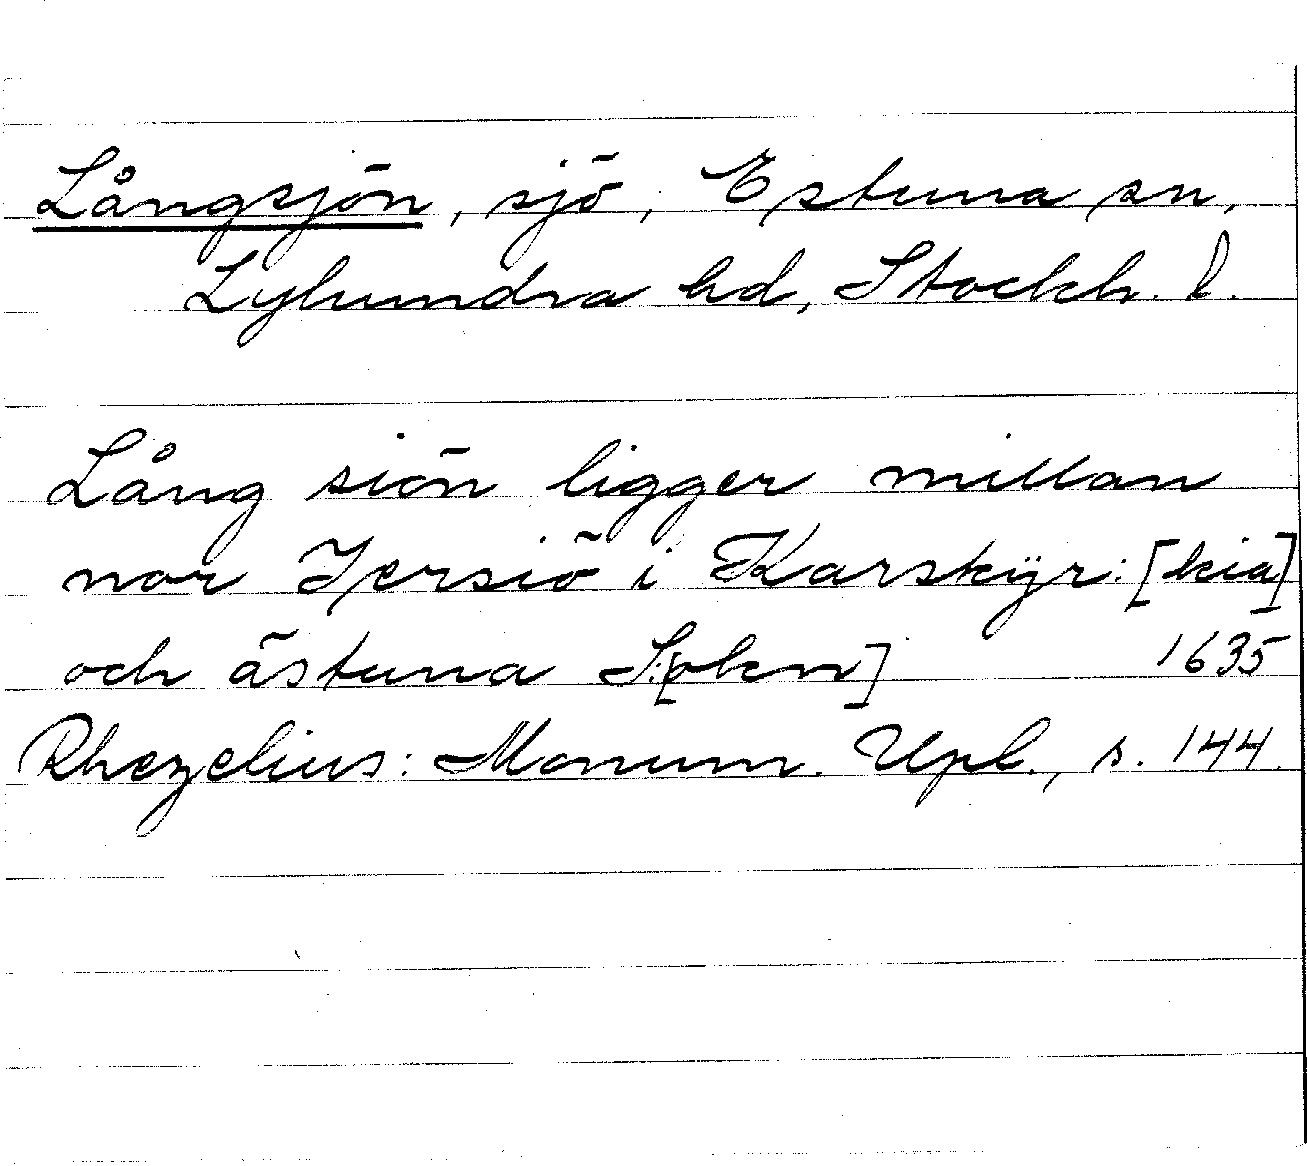 Långsjön, sjö, Estuna sn,
Lyhundra hd, Stockh. l.
Lång siön ligger millan
nor Jersiö i Karskÿr:[kia]
och ästuna S:[okn] 1635
Rhezelius: Monum. Upl., s. 144.